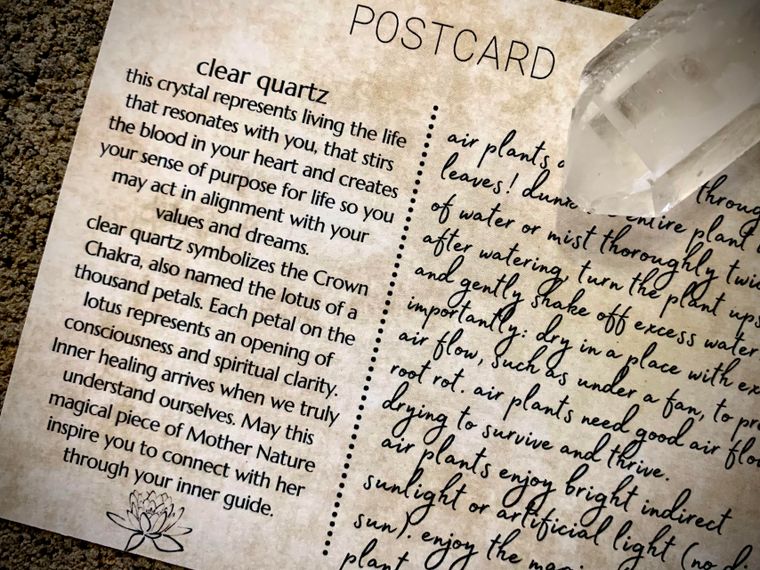 POSTCARD
clear quartz
this crystal represents living the life
that resonates with you, that stirs
the blood in your heart and creates
your sense of purpose for life so you
may act in alignment with your
values and dreams.
clear quartz symbolizes the Crown
Chakra, also named the lotus of a
thousand petals. Each petal on the
lotus represents an opening of
consciousness and spiritual clarity.
Inner healing arrives when we truly
understand ourselves. May this
magical piece of Mother Nature
inspire you to connect with her
through your inner guide.
air plants
leaves! entire plant
of water or mist thoroughly
after watering, turn the plant
and gently shake off excess water
importantly: dry in a place with
air flow, such as under a fan, to
root rot. air plants need good air
drying to survive and thrive.
air plants enjoy bright indirect
sunlight or artificial light (no
sun). enjoy the
plant